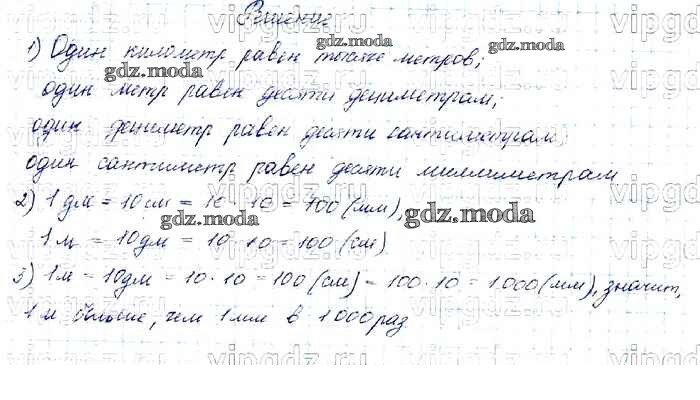 Решение
1) Один километр равен тысяче метров;
один метр равен десяти дециметрам;
один дециметр равен десяти сантиметрам
один сантиметр равен десяти миллиметрам
2) 1 дм = 10 см = 10 · 10 = 100 (мм),
1 м = 10 дм = 10 · 10 = 100 (см)
3) 1 м = 10 дм = 10 · 10 = 100 (см) = 100 · 10 = 1000 (мм), значит,
1 м больше, чем 1 мм в 1000 раз
gdz.moda
gdz.moda
gdz.moda
gdz.moda
gdz.moda
gdz.moda
vipgdz.ru
vipgdz.ru
vipgdz.ru